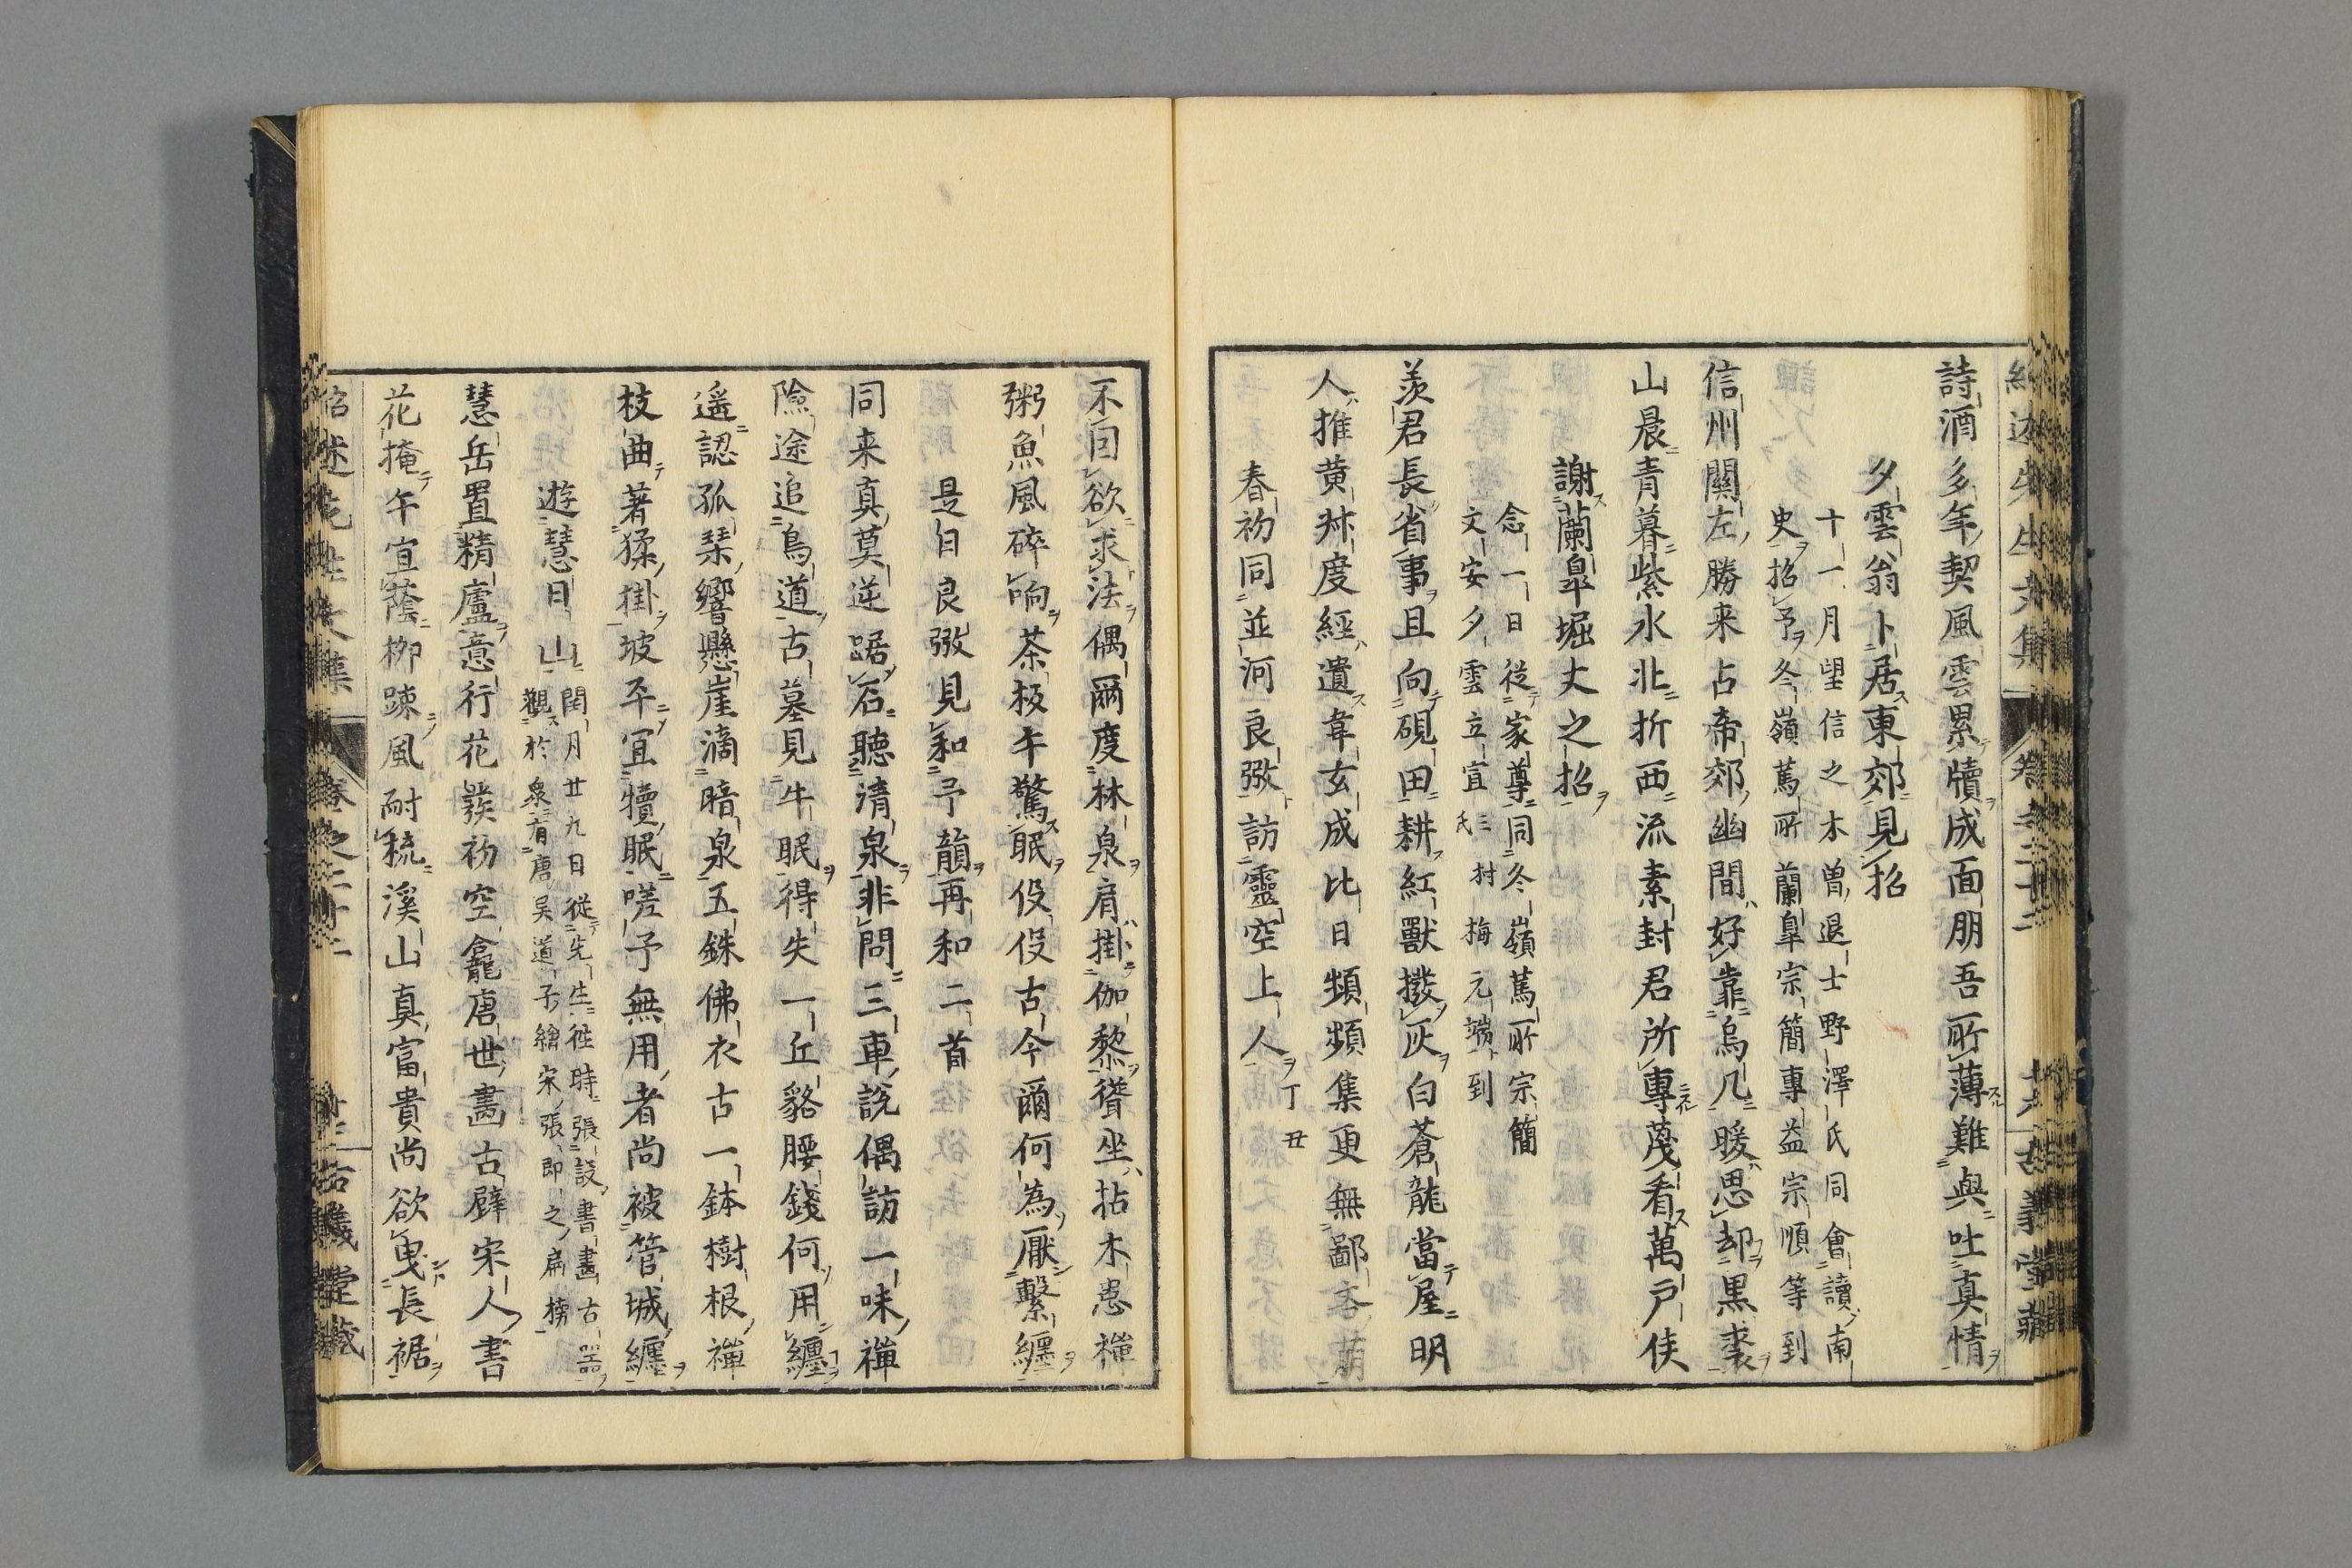 詩酒多年契風雲累牘成面朋吾所薄難與吐真情
夕雲翁卜居東郊見招
十一月望信之木曽退士野澤氏同會讀南
史招予冬嶺蔦所蘭皐宗簡專益宗順等到
信州關左勝来占帝郊幽間好靠烏几暖思却黒裘
山晨青暮紫水北折西流素封君所專蔑看萬戸侯
謝蘭皐堀丈之招
念一日從家尊同冬嶺蔦所宗簡
文安夕雲立宜三村氏梅元端到
羨君長省事且向硯田耕紅獸撥灰白蒼龍當屋明
人推黄叔度經遺韋玄成比日頻頻集更無鄙吝萌
春初同並河良弼訪靈空上人丁丑
不因欲求法偶爾度林泉肩掛伽黎聳坐拈木患禪
粥魚風碎响茶板午驚眠伇伇古今爾何為厭繫纏
是日良弼見和予韻再和二首
同来真莫逆踞石聽清泉非問三車說偶訪一味禪
險途追鳥道古墓見牛眠得失一丘貉腰錢何用纏
遥認孤琹響懸崖滴暗泉五銖佛衣古一鉢樹根禪
枝曲著猱掛坡平宜犢眠嗟予無用者尚被管城纏
遊慧日山閏月廿九日從先生徃時張設書畫古器
觀於泉有唐吴道子繪宋張即之扁榜
慧岳置精廬意行花發初空龕唐世畵古壁宋人書
花掩午宜蔭栁踈風耐梳溪山真富貴尚欲曳長裾
紹述先生文集
卷之二十二
古義堂藏